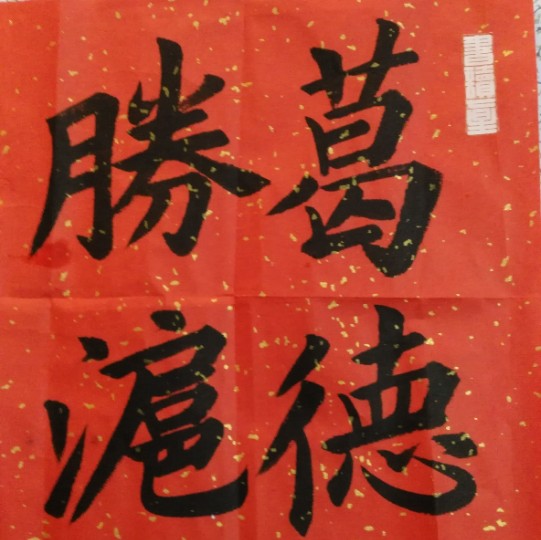 葛德
勝滬